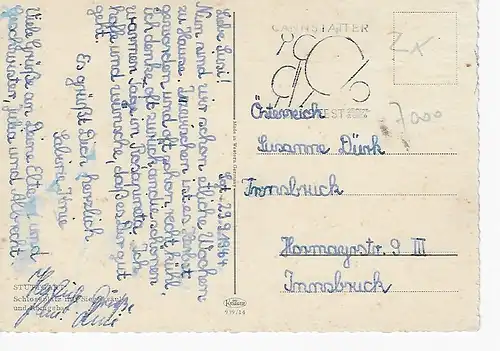 Stgt. 29.9.1964
Liebe Susi!
Nun sind wir schon etliche Wochen
zu Hause. Inzwischen ist es Herbst
geworden und oft schon recht kühl.
Ich denke oft zurück an die schönen
warmen Tage in Rosapineta. Ich
hoffe und wünsche, daß es Dir gut
geht.
Es grüßt Dich herzlich
Viele Grüße an Deine Eltern und
Geschwister, Julia und Albrecht.
STUTTGART
Schlossplatz mit Siegessäule
und Königsbau
Made in Western Germany
Krüger
939/14
CANNSTATTER
Österreich
Susanne Dürk
Innsbruck
Hormayrstr. 9 III
Innsbruck
7000